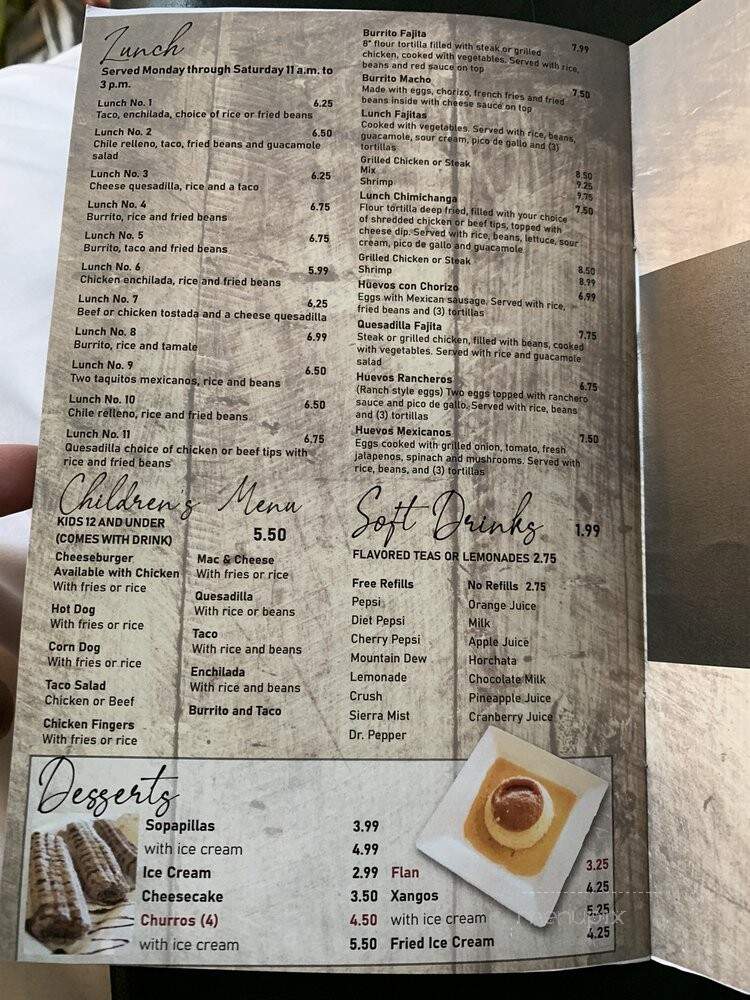 Lunch
Served Monday through Saturday 11 a.m. to
3 p.m.
Lunch No. 1 6.25
Taco, enchilada, choice of rice or fried beans
Lunch No. 2 6.50
Chile relleno, taco, fried beans and guacamole
salad
Lunch No. 3 6.25
Cheese quesadilla, rice and a taco
Lunch No. 4 6.75
Burrito, rice and fried beans
Lunch No. 5 6.75
Burrito, taco and fried beans
Lunch No. 6 5.99
Chicken enchilada, rice and fried beans
Lunch No. 7 6.25
Beef or chicken tostada and a cheese quesadilla
Lunch No. 8 6.99
Burrito, rice and tamale
Lunch No. 9 6.50
Two taquitos mexicanos, rice and beans
Lunch No. 10 6.50
Chile relleno, rice and fried beans
Lunch No. 11 6.75
Quesadilla choice of chicken or beef tips with
rice and fried beans
Burrito Fajita 7.99
8" flour tortilla filled with steak or grilled
chicken, cooked with vegetables. Served with rice,
beans and red sauce on top
Burrito Macho 7.50
Made with eggs, chorizo, french fries and fried
beans inside with cheese sauce on top
Lunch Fajitas
Cooked with vegetables. Served with rice, beans,
guacamole, sour cream, pico de gallo and (3)
tortillas
Grilled Chicken or Steak 8.50
Mix 9.25
Shrimp 9.75
Lunch Chimichanga 7.50
Flour tortilla deep fried, filled with your choice
of shredded chicken or beef tips, topped with
cheese dip. Served with rice, beans, lettuce, sour
cream, pico de gallo and guacamole
Grilled Chicken or Steak 8.50
Shrimp 8.99
Huevos con Chorizo 6.99
Eggs with Mexican sausage. Served with rice,
fried beans and (3) tortillas
Quesadilla Fajita 7.75
Steak or grilled chicken, filled with beans, cooked
with vegetables. Served with rice and guacamole
salad
Huevos Rancheros 6.75
(Ranch style eggs) Two eggs topped with ranchero
sauce and pico de gallo. Served with rice, beans
and (3) tortillas
Huevos Mexicanos 7.50
Eggs cooked with grilled onion, tomato, fresh
jalapenos, spinach and mushrooms. Served with
rice, beans, and (3) tortillas
Children's Menu
KIDS 12 AND UNDER
(COMES WITH DRINK) 5.50
Cheeseburger
Available with Chicken
With fries or rice
Hot Dog
With fries or rice
Corn Dog
With fries or rice
Taco Salad
Chicken or Beef
Chicken Fingers
With fries or rice
Mac & Cheese
With fries or rice
Quesadilla
With rice or beans
Taco
With rice and beans
Enchilada
With rice and beans
Burrito and Taco
Soft Drinks 1.99
FLAVORED TEAS OR LEMONADES 2.75
Free Refills
Pepsi
Diet Pepsi
Cherry Pepsi
Mountain Dew
Lemonade
Crush
Sierra Mist
Dr. Pepper
No Refills 2.75
Orange Juice
Milk
Apple Juice
Horchata
Chocolate Milk
Pineapple Juice
Cranberry Juice
Desserts
Sopapillas 3.99
with ice cream 4.99
Ice Cream 2.99
Cheesecake 3.50
Churros (4) 4.50
with ice cream 5.50
Flan 3.25
Xangos 4.25
with ice cream 5.25
Fried Ice Cream 4.25
menupix